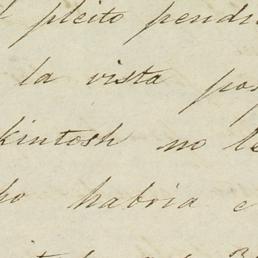 pleito pend
la vista po
kintosh no le
ho habria e